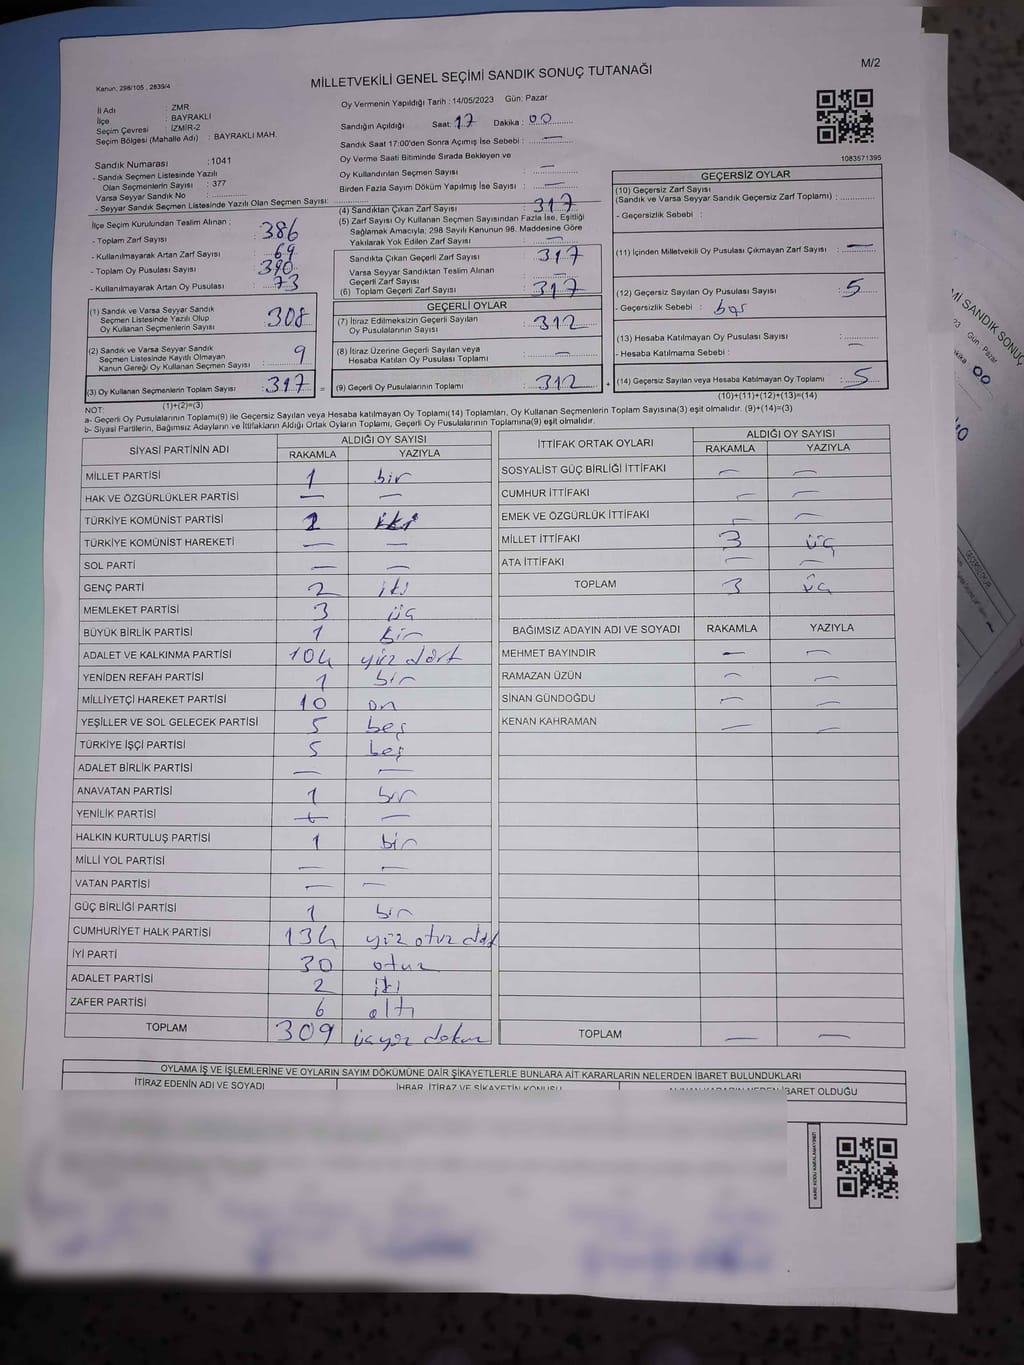 M/2
Kanun: 298/105 , 2839/4
MİLLETVEKİLİ GENEL SEÇİMİ SANDIK SONUÇ TUTANAĞI
İl Adı : ZMR
İlçe : BAYRAKLI
Seçim Çevresi : İZMİR-2
Seçim Bölgesi (Mahalle Adı) : BAYRAKLI MAH.
Sandık Numarası : 1041
- Sandık Seçmen Listesinde Yazılı
Olan Seçmenlerin Sayısı : 377
Varsa Seyyar Sandık No :
- Seyyar Sandık Seçmen Listesinde Yazılı Olan Seçmen Sayısı:
Oy Vermenin Yapıldığı Tarih : 14/05/2023 Gün: Pazar
Sandığın Açıldığı Saat: 17 Dakika : 00
Sandık Saat 17:00'den Sonra Açımış İse Sebebi : —
Oy Verme Saati Bitiminde Sırada Bekleyen ve
Oy Kullandırılan Seçmen Sayısı —
Birden Fazla Sayım Döküm Yapılmış İse Sayısı : —
1083571395
İlçe Seçim Kurulundan Teslim Alınan ;
- Toplam Zarf Sayısı 386
- Kullanılmayarak Artan Zarf Sayısı 69
- Toplam Oy Pusulası Sayısı 390
- Kullanılmayarak Artan Oy Pusulası : 73
(1) Sandık ve Varsa Seyyar Sandık
Seçmen Listesinde Yazılı Olup
Oy Kullanan Seçmenlerin Sayısı 308
(2) Sandık ve Varsa Seyyar Sandık
Seçmen Listesinde Kayıtlı Olmayan
Kanun Gereği Oy Kullanan Seçmen Sayısı : 9
(3) Oy Kullanan Seçmenlerin Toplam Sayısı : 317 =
(1)+(2)=(3)
(4) Sandıktan Çıkan Zarf Sayısı 317
(5) Zarf Sayısı Oy Kullanan Seçmen Sayısından Fazla İse, Eşitliği
Sağlamak Amacıyla; 298 Sayılı Kanunun 98. Maddesine Göre
Yakılarak Yok Edilen Zarf Sayısı : —
Sandıkta Çıkan Geçerli Zarf Sayısı : 317
Varsa Seyyar Sandıktan Teslim Alınan
Geçerli Zarf Sayısı : —
(6) Toplam Geçerli Zarf Sayısı : 317
GEÇERLİ OYLAR
(7) İtiraz Edilmeksizin Geçerli Sayılan
Oy Pusulalarının Sayısı : 312
(8) İtiraz Üzerine Geçerli Sayılan veya
Hesaba Katılan Oy Pusulası Toplamı : —
(9) Geçerli Oy Pusulalarının Toplamı : 312 +
GEÇERSİZ OYLAR
(10) Geçersiz Zarf Sayısı
(Sandık ve Varsa Seyyar Sandık Geçersiz Zarf Toplamı) :
- Geçersizlik Sebebi :
(11) İçinden Milletvekili Oy Pusulası Çıkmayan Zarf Sayısı : —
(12) Geçersiz Sayılan Oy Pusulası Sayısı : 5
- Geçersizlik Sebebi :
(13) Hesaba Katılmayan Oy Pusulası Sayısı :
- Hesaba Katılmama Sebebi : —
(14) Geçersiz Sayılan veya Hesaba Katılmayan Oy Toplamı : 5
(10)+(11)+(12)+(13)=(14)
NOT:
a- Geçerli Oy Pusulalarının Toplamı(9) ile Geçersiz Sayılan veya Hesaba katılmayan Oy Toplamı(14) Toplamları, Oy Kullanan Seçmenlerin Toplam Sayısına(3) eşit olmalıdır. (9)+(14)=(3)
b- Siyasi Partilerin, Bağımsız Adayların ve İttifakların Aldığı Ortak Oyların Toplamı, Geçerli Oy Pusulalarının Toplamına(9) eşit olmalıdır.
SİYASİ PARTİNİN ADI ALDIĞI OY SAYISI
RAKAMLA YAZIYLA
MİLLET PARTİSİ 1 bir
HAK VE ÖZGÜRLÜKLER PARTİSİ — —
TÜRKİYE KOMÜNİST PARTİSİ 2 iki
TÜRKİYE KOMÜNİST HAREKETİ — —
SOL PARTİ — —
GENÇ PARTİ 2 iki
MEMLEKET PARTİSİ 3 üç
BÜYÜK BİRLİK PARTİSİ 1 bir
ADALET VE KALKINMA PARTİSİ 104 yüz dört
YENİDEN REFAH PARTİSİ 1 bir
MİLLİYETÇİ HAREKET PARTİSİ 10 on
YEŞİLLER VE SOL GELECEK PARTİSİ 5 beş
TÜRKİYE İŞÇİ PARTİSİ 5 beş
ADALET BİRLİK PARTİSİ — —
ANAVATAN PARTİSİ 1 bir
YENİLİK PARTİSİ — —
HALKIN KURTULUŞ PARTİSİ 1 bir
MİLLİ YOL PARTİSİ — —
VATAN PARTİSİ — —
GÜÇ BİRLİĞİ PARTİSİ 1 bir
CUMHURİYET HALK PARTİSİ 134 yüz otuz dört
İYİ PARTİ 30 otuz
ADALET PARTİSİ 2 iki
ZAFER PARTİSİ 6 altı
TOPLAM 309 üçyüz dokuz
İTTİFAK ORTAK OYLARI ALDIĞI OY SAYISI
RAKAMLA YAZIYLA
SOSYALİST GÜÇ BİRLİĞİ İTTİFAKI — —
CUMHUR İTTİFAKI — —
EMEK VE ÖZGÜRLÜK İTTİFAKI — —
MİLLET İTTİFAKI 3 üç
ATA İTTİFAKI — —
TOPLAM 3 üç
BAĞIMSIZ ADAYIN ADI VE SOYADI RAKAMLA YAZIYLA
MEHMET BAYINDIR — —
RAMAZAN ÜZÜN — —
SİNAN GÜNDOĞDU — —
KENAN KAHRAMAN — —
TOPLAM — —
OYLAMA İŞ VE İŞLEMLERİNE VE OYLARIN SAYIM DÖKÜMÜNE DAİR ŞİKAYETLERLE BUNLARA AİT KARARLARIN NELERDEN İBARET BULUNDUKLARI
İTİRAZ EDENİN ADI VE SOYADI İHBAR, İTİRAZ VE ŞİKAYETİN KONUSU İBARET OLDUĞU
KARE KODU KARALAMAYINIZ!
Mİ SANDIK SONUÇ
23 Gün: Pazar
kika : 00